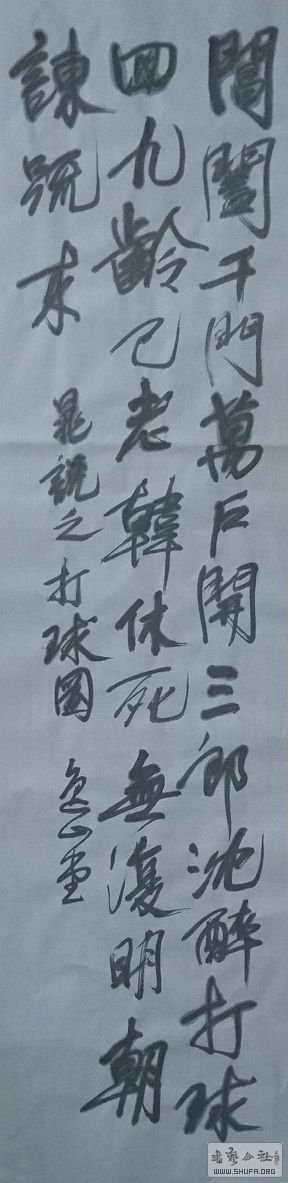 閶闔千門萬戶開三郎沈醉打球
回九齡已老韓休死無復明朝
諫疏来
晁說之打球圖
書藝公社
WWW.SHUFA.ORG